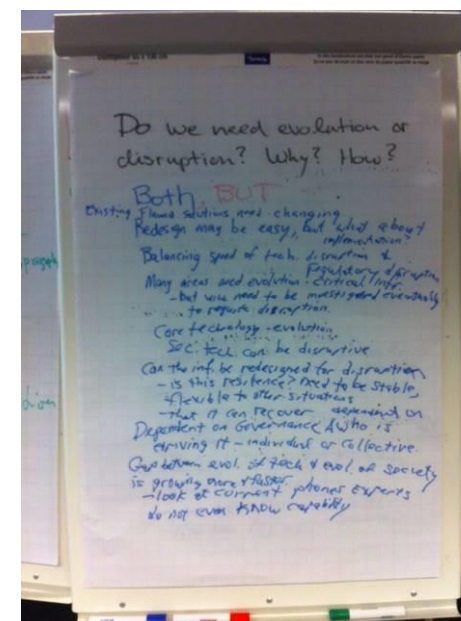 Do we need evolution or
disruption? Why? How?
Both, BUT
Existing Flawed solutions need changing
Redesign may be easy, but what about
implementation?
Balancing speed of tech. disruption &
Regulatory disruption
Many areas need evolution - critical infr.
- but will need to be investigated eventually
to require disruption.
Core technology - evolution
Sec. tech can be disruptive
Can the inf. be redesigned for disruption
- is this resilence? need to be stable,
flexible to other situations
- that it can recover dependend on
Dependent on Governance & who is
driving it - individual or collective.
Gap between evol. of tech & evol. of society
is growing more & faster
- look at current phones experts
do not even know capability